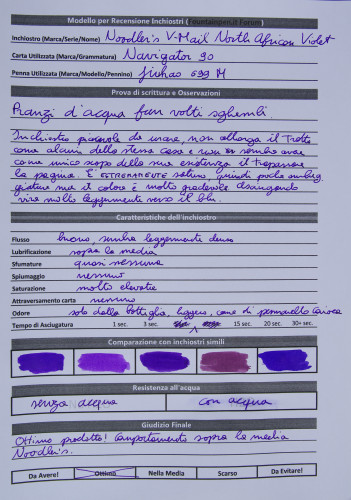 Modello per Recensione Inchiostri (Fountainpen.it Forum)
Inchiostro (Marca/Serie/Nome) Noodler's V-Mail North African Violet
Carta Utilizzata (Marca/Grammatura) Navigator 90
Penna Utilizzata (Marca/Modello/Pennino) Jinhao 599 M
Prova di scrittura e Osservazioni
Pranzi d'acqua fan volti sghembi.
Inchiostro piacevole da usare, non allarga il tratto
come alcuni della stessa casa e non sembra avere
come unico scopo della sua esistenza il trapassare
la pagina. E' ESTREMAMENTE saturo, quindi poche ombreg
giature ma il colore è molto gradevole asciugando
vira molto leggermente verso il blu.
Caratteristiche dell'inchiostro
Flusso buono, sembra leggermente denso
Lubrificazione sopra la media
Sfumature quasi nessuna
Spiumaggio nessuno
Saturazione molto elevata
Attraversamento carta nessuno
Odore solo dalla bottiglia, leggero, come di pennarello Carioca
Tempo di Asciugatura 1 sec. 3 sec. 15 sec. 20 sec. 30+ sec.
Comparazione con inchiostri simili
Resistenza all'acqua
senza acqua con acqua
Giudizio Finale
Ottimo prodotto! Comportamento sopra la media
Noodler's.
Da Avere! Ottimo Nella Media Scarso Da Evitare!